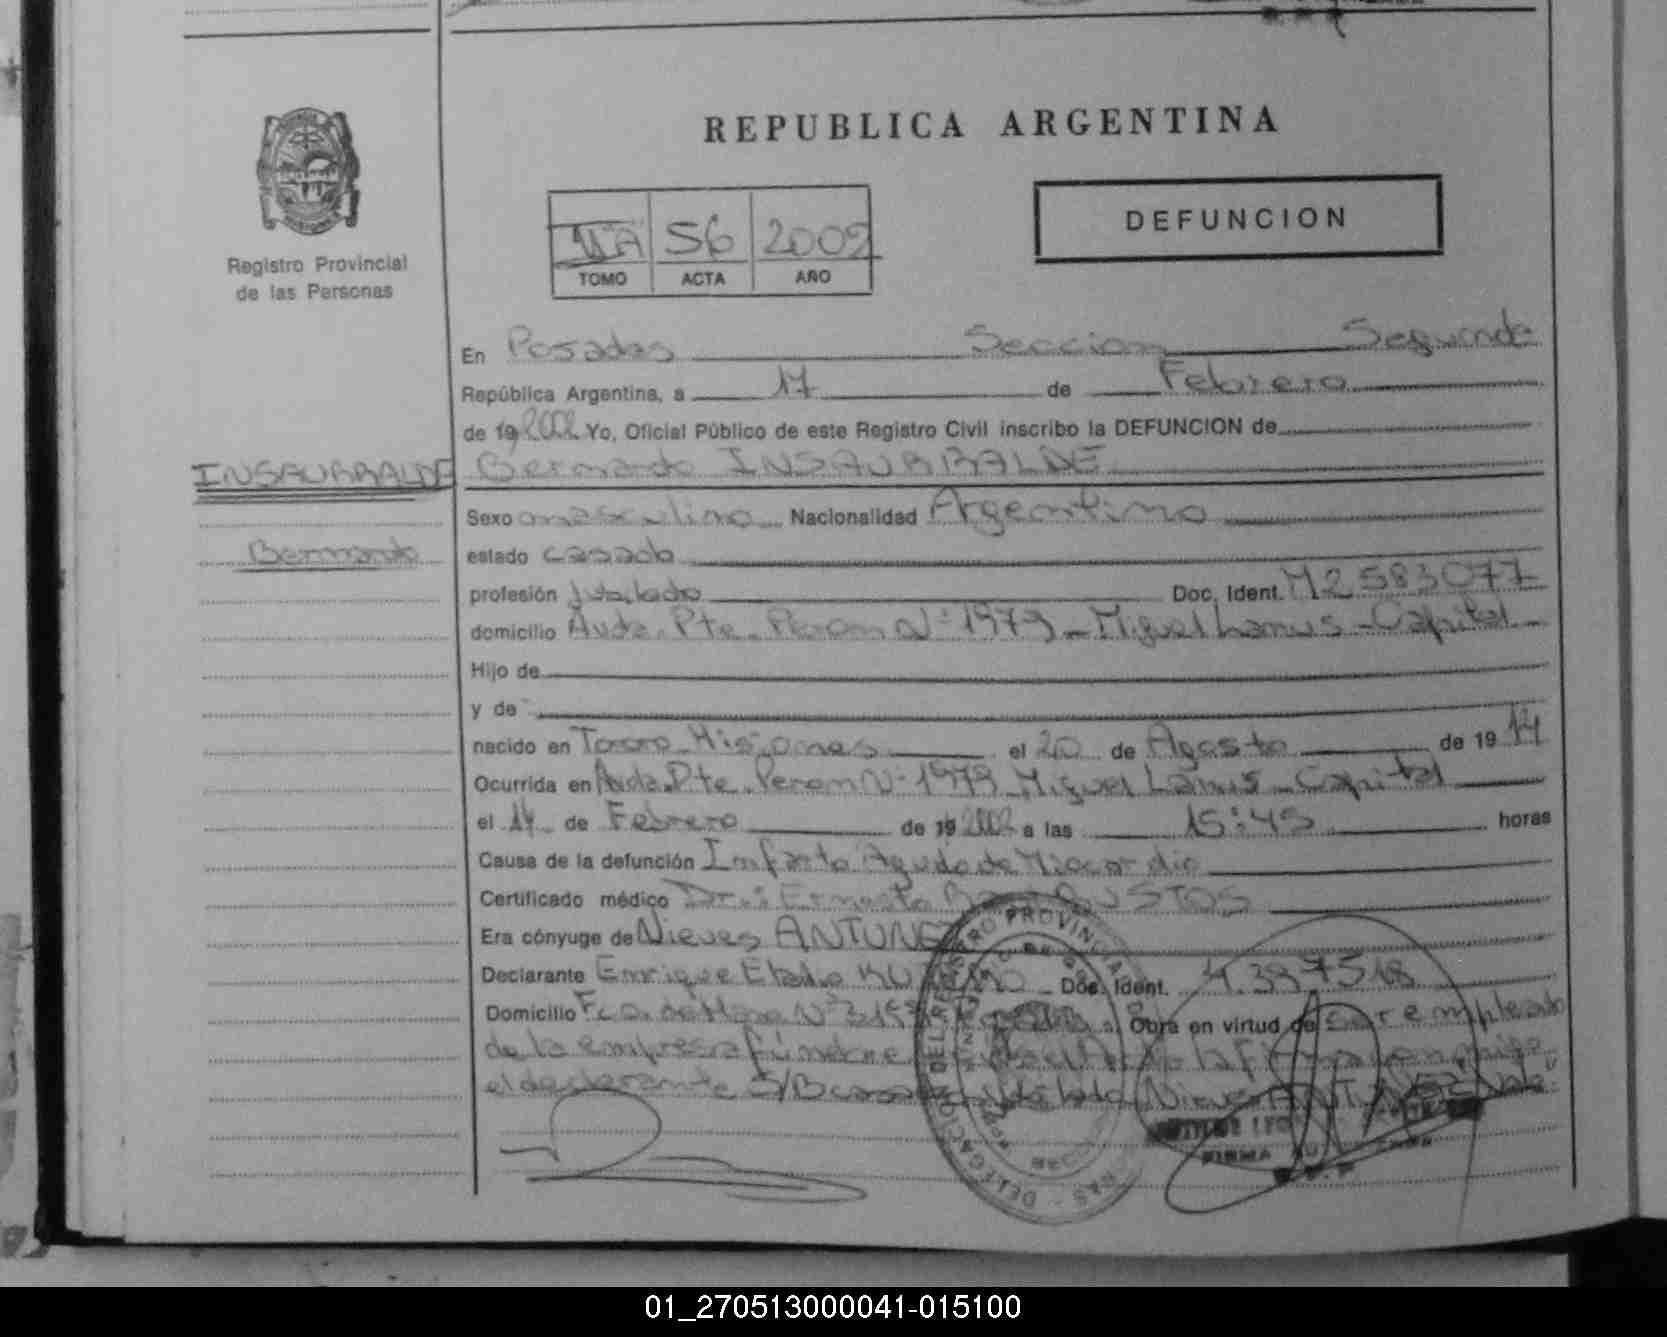 REPUBLICA ARGENTINA
DEFUNCION
Registro Provincial
de las Personas
IIA 56 2002
TOMO ACTA AÑO
En Posadas Seccion Segunda
República Argentina, a 17 de Febrero
de 19 2002 Yo, Oficial Público de este Registro Civil inscribo la DEFUNCION de
INSAURRALDE Bernardo INSAURRALDE
Sexo masculino Nacionalidad Argentino
Bernardo estado casado
profesión Jubilado Doc. Ident. M2583077
domicilio Avda. Pte. Peron Nº 1979 - Miguel Lanus - Capital -
Hijo de
y de
nacido en Misiones el 20 de Agosto de 19 14
Ocurrida en Avda. Pte. Peron Nº 1979 Miguel Lanus - Capital
el 14 de Febrero de 19 2002 a las 15:45 horas
Causa de la defunción Infarto Agudo de Miocardio
Certificado médico Dr.: Ernesto BUSTOS
Era cónyuge de Nieves ANTUNEZ
Declarante Enrique Eladio Doc. Ident.
Domicilio Fco. de Haro Nº Obra en virtud de ser empleado
de la empresa funebre la firma conmigo
el declarante S/B Nieves ANTUNEZ Vale:
REGISTRO PROVINCIAL DE LAS PERSONAS - DELEGACION
FIRMA
01_270513000041-015100